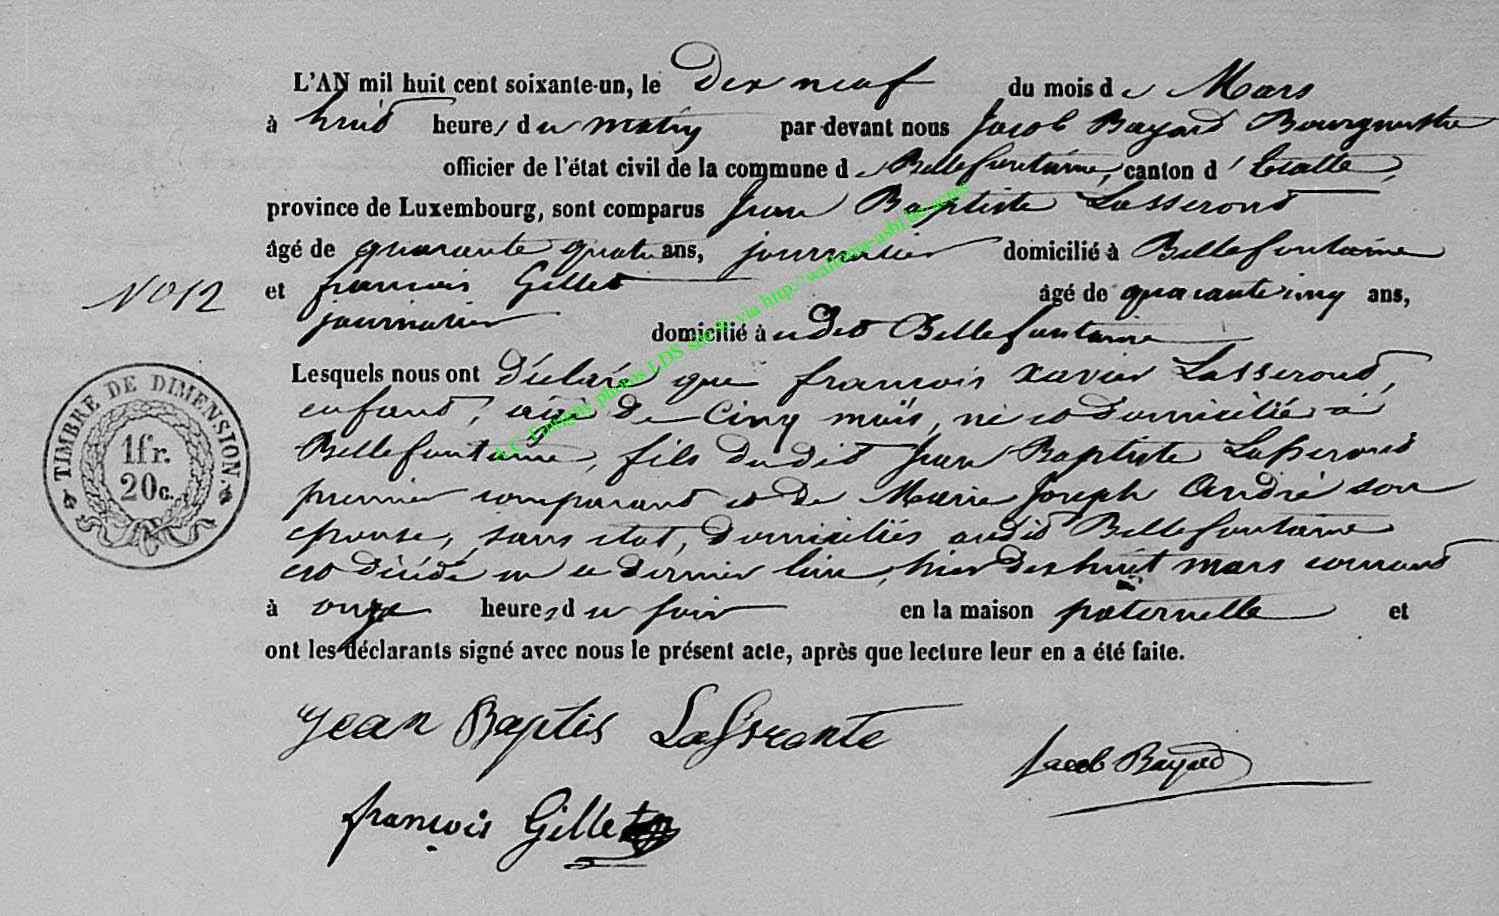 L'AN mil huit cent soixante-un, le dix neuf du mois de Mars
à huit heures du matin par devant nous Jacob Bayard Bourgmestre
officier de l'état civil de la commune de Bellefontaine, canton d'Etalle,
province de Luxembourg, sont comparus Jean Baptiste Lasseront
âgé de quarante quatre ans, journalier domicilié à Bellefontaine
et françois Gillet âgé de quarante cinq ans,
N° 12
journalier domicilié à udit Bellefontaine
Lesquels nous ont déclaré que françois Xavier Lasseront,
enfant, agé de Cinq mois, né et domicilié à
Bellefontaine, fils dudit Jean Baptiste Lasseront
premier comparant et de Marie Joseph André son
epouse, sans etat, domiciliés audit Bellefontaine
est décédé en ce dernier lieu, hier dix huit mars courant
à onze heures du soir en la maison paternelle et
ont les déclarants signé avec nous le présent acte, après que lecture leur en a été faite.
TIMBRE DE DIMENSION.
1fr.
20c.
Jean Baptis Lasseronte
Jacob Bayard
françois Gillet
A.C. Tintigny photos LDS via http://wallonia-asbl.be/actes